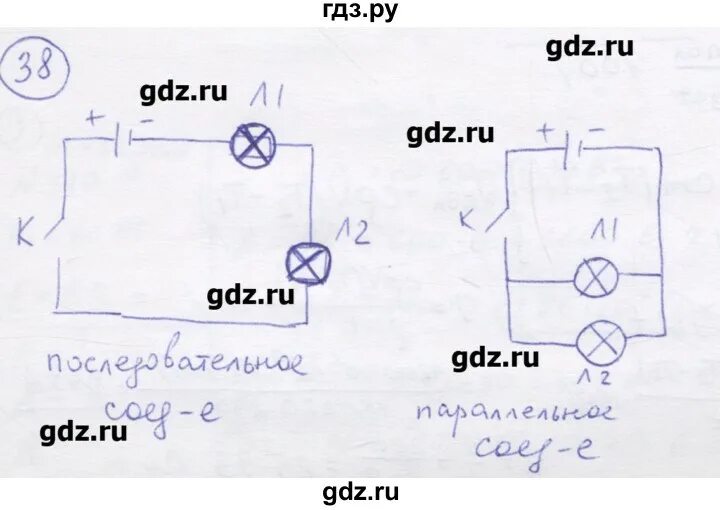 гдз.ру
gdz.ru
38
gdz.ru
Л1
+ -
K
Л2
gdz.ru
последовательное
соед-е
gdz.ru
gdz.ru
+ -
K
Л1
gdz.ru
Л2
параллельное
соед-е
gdz.ru